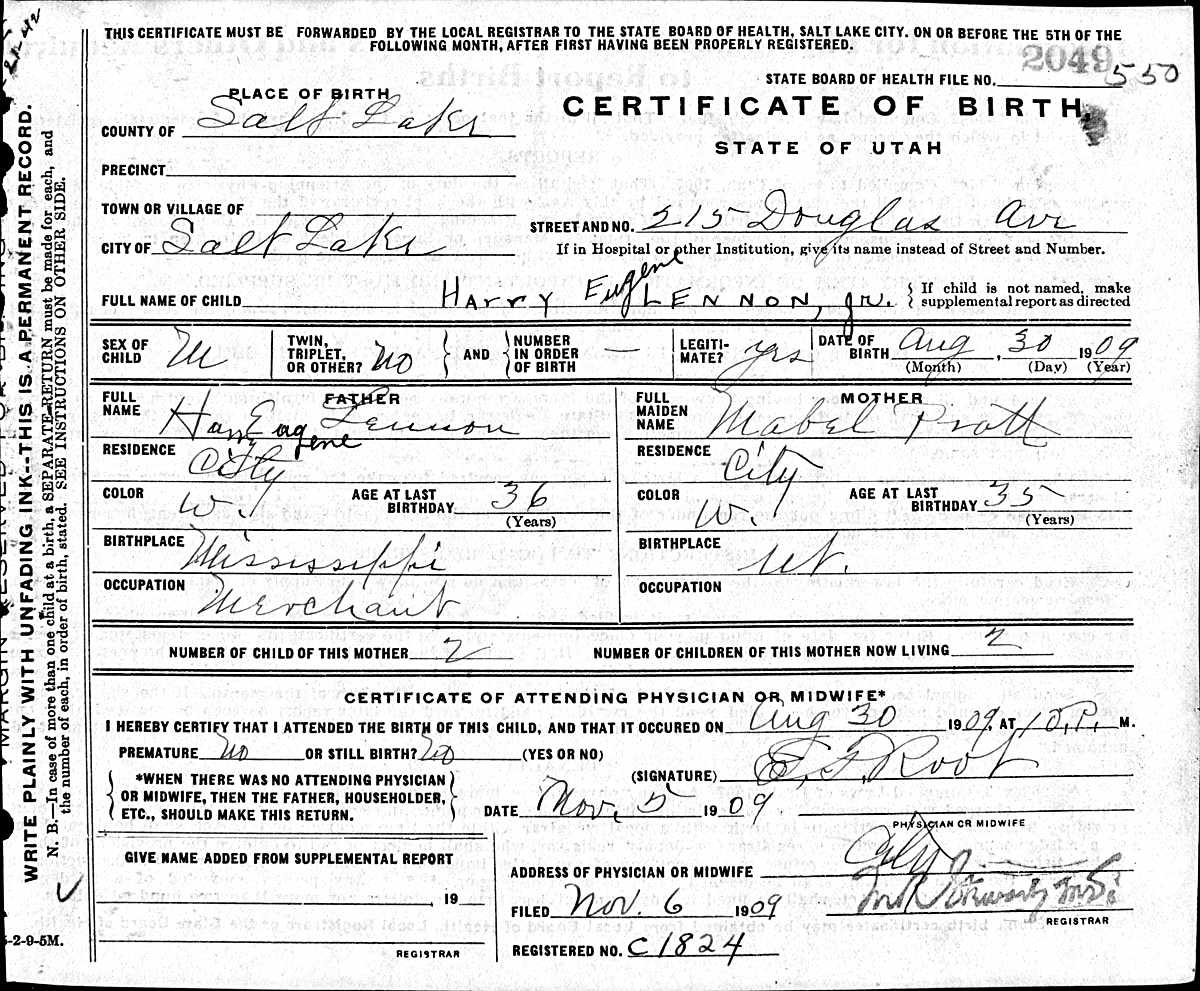 THIS CERTIFICATE MUST BE FORWARDED BY THE LOCAL REGISTRAR TO THE STATE BOARD OF HEALTH, SALT LAKE CITY. ON OR BEFORE THE 5TH OF THE
FOLLOWING MONTH, AFTER FIRST HAVING BEEN PROPERLY REGISTERED.
2049
STATE BOARD OF HEALTH FILE NO. 550
PLACE OF BIRTH
CERTIFICATE OF BIRTH
COUNTY OF Salt Lake
STATE OF UTAH
PRECINCT
TOWN OR VILLAGE OF
STREET AND NO. 215 Douglas Ave
CITY OF Salt Lake
If in Hospital or other Institution, give its name instead of Street and Number.
FULL NAME OF CHILD HARRY Eugene LENNON, jr. { If child is not named, make
supplemental report as directed
SEX OF CHILD M
TWIN, TRIPLET, OR OTHER? NO
AND
NUMBER IN ORDER OF BIRTH —
LEGITIMATE? yes
DATE OF BIRTH Aug, 30 1909
(Month) (Day) (Year)
FATHER
FULL NAME Harry Eugene Lennon
RESIDENCE City
COLOR W.
AGE AT LAST BIRTHDAY 36
(Years)
BIRTHPLACE Mississippi
OCCUPATION Merchant
MOTHER
FULL MAIDEN NAME Mabel Pratt
RESIDENCE City
COLOR W.
AGE AT LAST BIRTHDAY 35
(Years)
BIRTHPLACE Ut.
OCCUPATION
NUMBER OF CHILD OF THIS MOTHER 2
NUMBER OF CHILDREN OF THIS MOTHER NOW LIVING 2
CERTIFICATE OF ATTENDING PHYSICIAN OR MIDWIFE*
I HEREBY CERTIFY THAT I ATTENDED THE BIRTH OF THIS CHILD, AND THAT IT OCCURED ON Aug 30 1909, AT 10 P. M.
PREMATURE No OR STILL BIRTH? No (YES OR NO)
(SIGNATURE) E. F. Root
*WHEN THERE WAS NO ATTENDING PHYSICIAN
OR MIDWIFE, THEN THE FATHER, HOUSEHOLDER,
ETC., SHOULD MAKE THIS RETURN.
DATE Nov. 5 1909
PHYSICIAN OR MIDWIFE
GIVE NAME ADDED FROM SUPPLEMENTAL REPORT
, 19
REGISTRAR
ADDRESS OF PHYSICIAN OR MIDWIFE City
FILED Nov. 6 1909
REGISTRAR
REGISTERED NO. C1824
WRITE PLAINLY WITH UNFADING INK--THIS IS A PERMANENT RECORD.
N. B.—In case of more than one child at a birth, a SEPARATE RETURN must be made for each, and
the number of each, in order of birth, stated. SEE INSTRUCTIONS ON OTHER SIDE.
-2-9-5M.